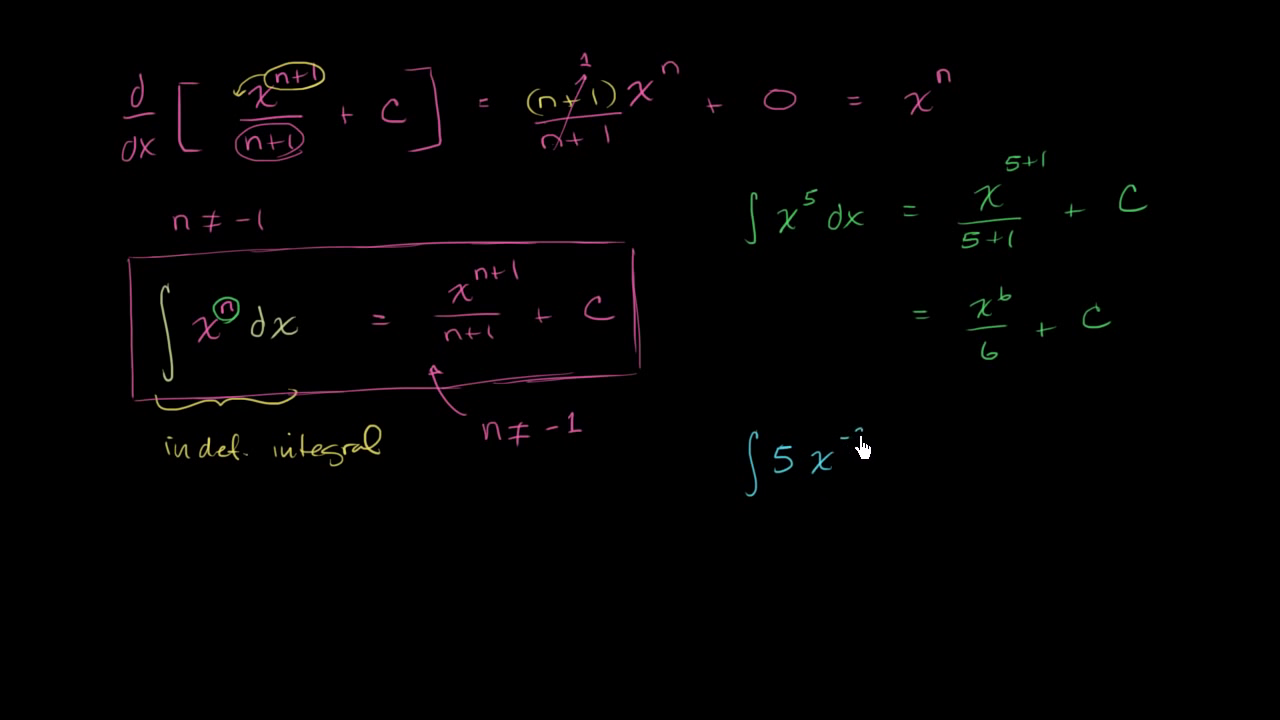 d/dx [ x^(n+1)/(n+1) + C ] = (n+1)x^n/(n+1) 1 + 0 = x^n
n ≠ -1
∫ x^n dx = x^(n+1)/(n+1) + C
n ≠ -1
indef. integral
∫ x^5 dx = x^(5+1)/(5+1) + C
= x^6/6 + C
∫ 5 x^-